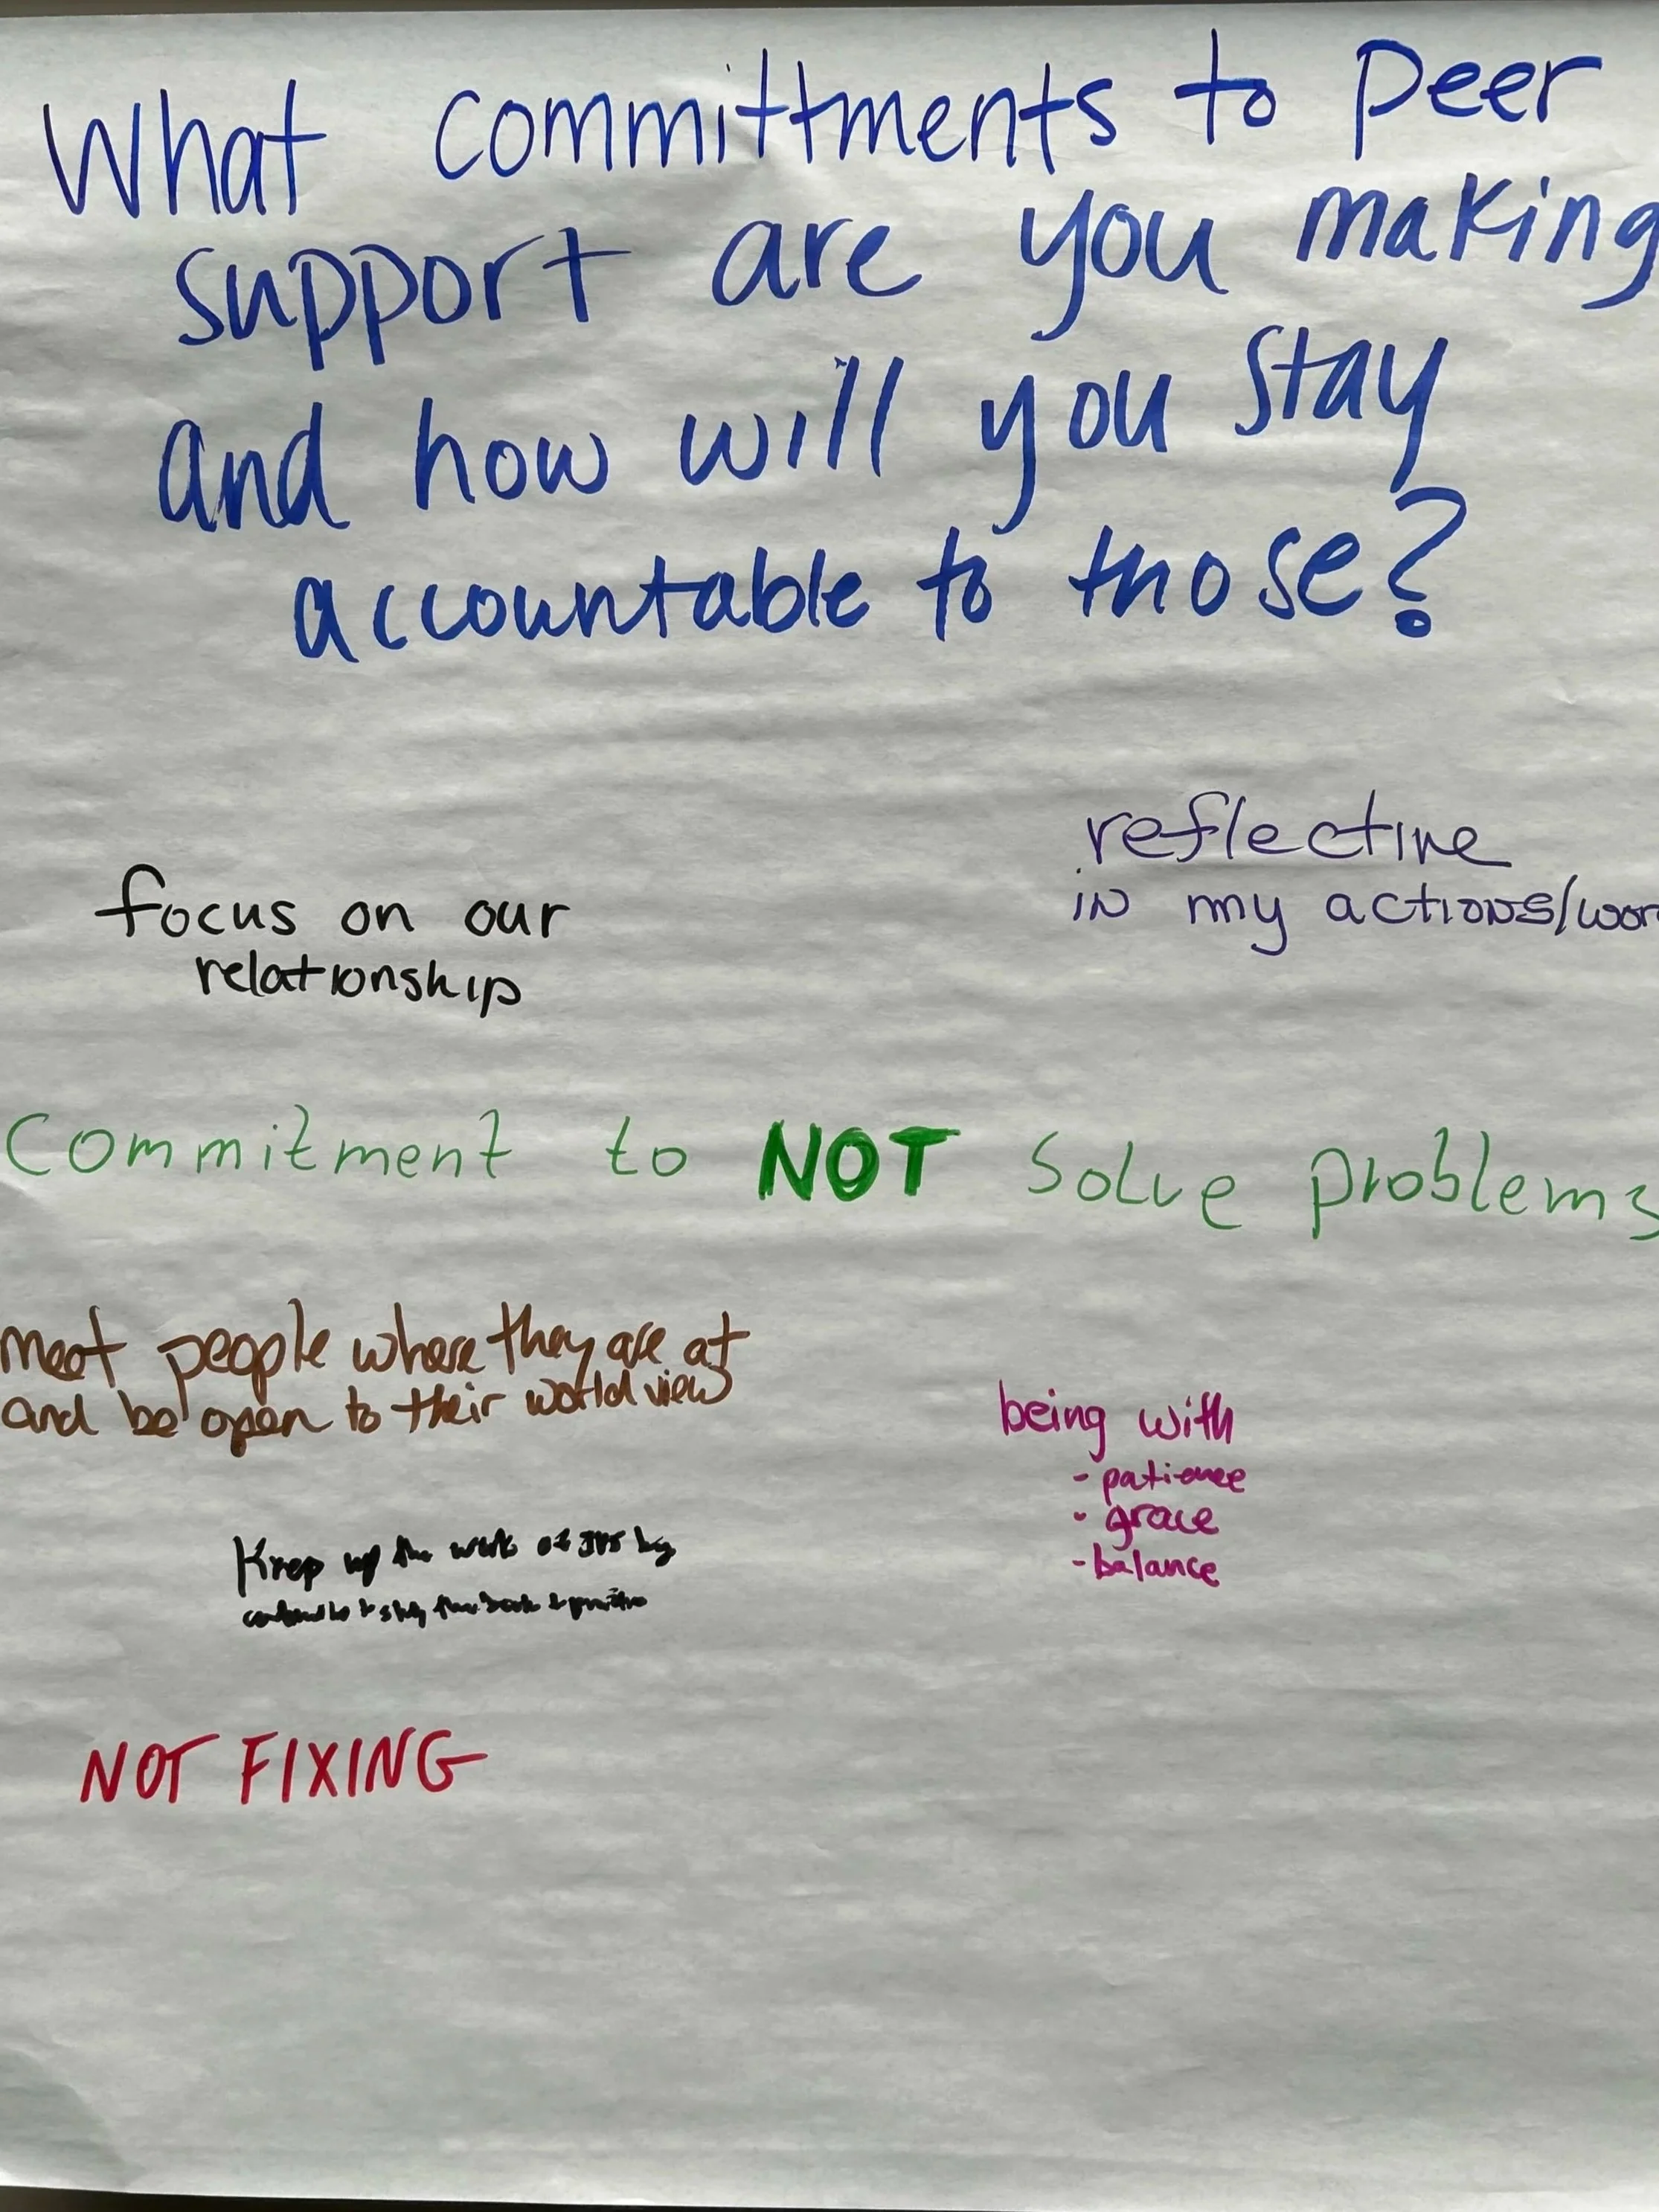 What committments to peer
support are you making
and how will you stay
accountable to those?
reflective
in my actions/wor
focus on our
relationship
Commitment to NOT solve problems
meet people where they are at
and be open to their world view
being with
- patience
- grace
- balance
Keep up the work of IPS by
NOT FIXING